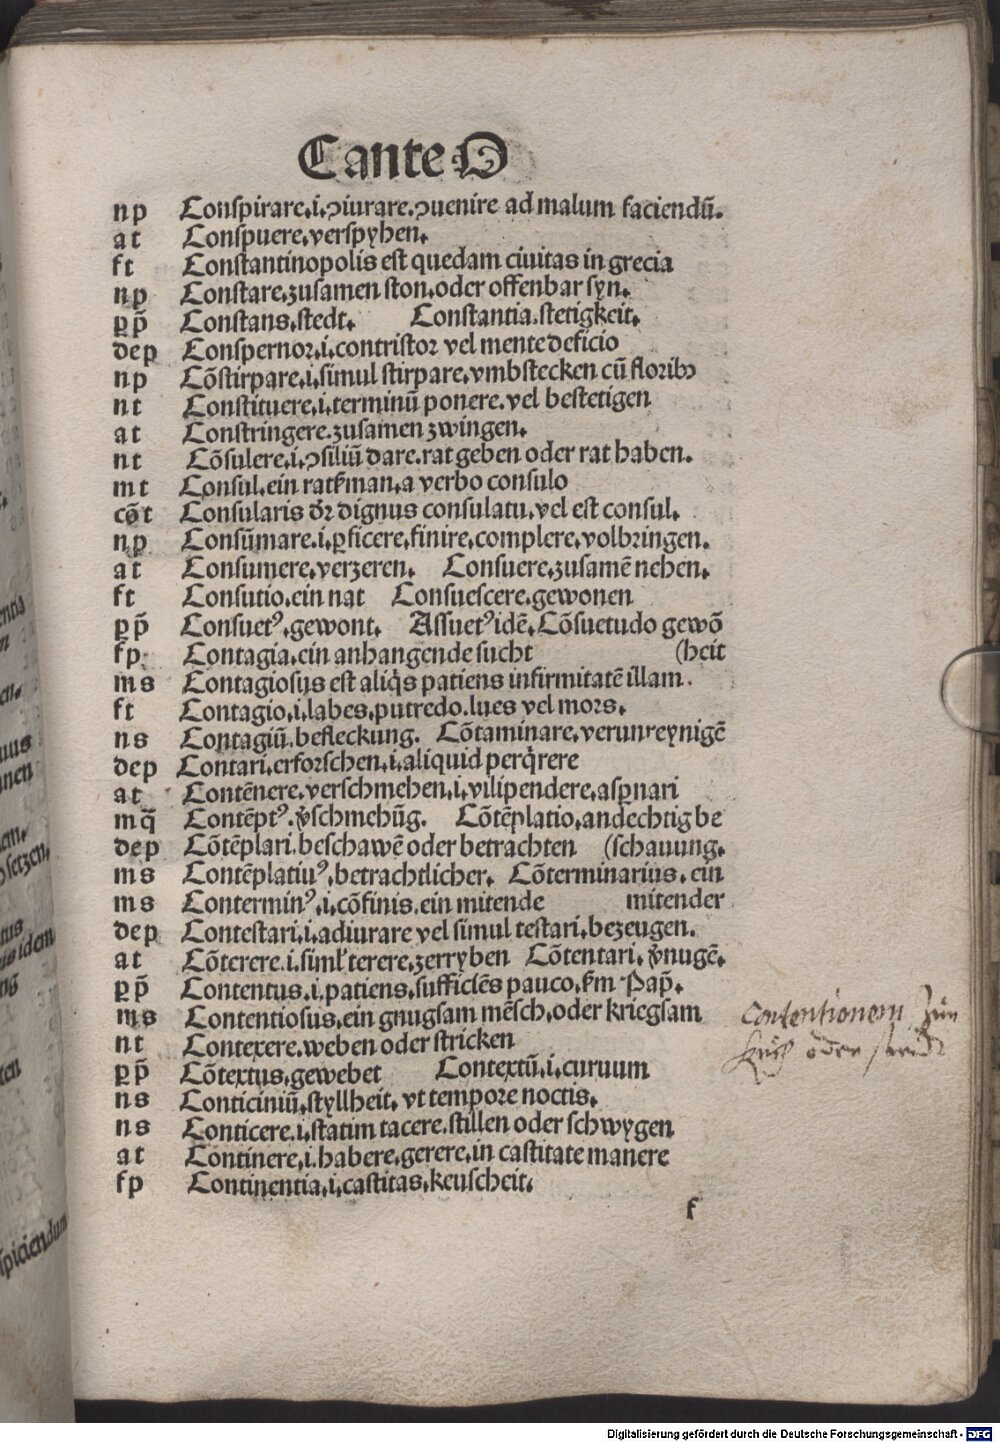 Cante O
np Conspirare.i.ꝯiurare.ꝯuenire ad malum faciendū.
at Conspuere.verspyhen.
ft Constantinopolis est quedam ciuitas in grecia
np Constare.zusamen ston.oder offenbar syn.
ꝑp̄ Constans.stedt. Constantia.stetigkeit.
dep Conspernor.i.contristor vel mente deficio
np Cōstirpare.i.simul stirpare.vmbstecken cū floribꝫ
nt Constituere.i.terminū ponere.vel bestetigen
at Constringere.zusamen zwingen.
nt Cōsulere.i.ꝯsiliū dare.rat geben oder rat haben.
mt Consul.ein ratſman.a verbo consulo
cōt Consularis dr̄ dignus consulatu.vel est consul.
np Consūmare.i.ꝑficere.finire.complere.volbringen.
at Consumere.verzeren. Consuere.zusamē nehen.
ft Consutio.ein nat Consuescere.gewonen
ꝑp̄ Consuetꝰ.gewont. Assuetꝰ idē.Cōsuetudo gewō
fp Contagia.ein anhangende sucht (heit
ms Contagiosus est aliq̄s patiens infirmitatē illam.
ft Contagio.i.labes.putredo.lues vel mors.
ns Contagiū.befleckung. Cōtaminare.verunreynigē
dep Contari.erforschen.i.aliquid perq̄rere
at Contēnere.verschmehen.i.vilipendere.aspnari
mq̄ Contēptꝰ.v̄schmehūg. Cōtēplatio.andechtig be
dep Cōtēplari.beschawē oder betrachten (schauung.
ms Contēplatiuꝰ.betrachtlicher. Cōterminarius.ein
ms Conterminꝰ.i.cōfinis.ein mitende mitender
dep Contestari.i.adiurare vel simul testari.bezeugen.
at Cōterere.i.siml' terere.zerryben Cōtentari.v̄nugē.
ꝑp̄ Contentus.i.patiens.sufficiēs pauco.ẜm Pap̄.
ms Contentiosus.ein gnugsam mēsch.oder kriegsam
nt Contexere.weben oder stricken
ꝑp̄ Cōtextus.gewebet Contextū.i.curuum
ns Conticiniū.styllheit.vt tempore noctis.
ns Conticere.i.statim tacere.stillen oder schwygen
at Continere.i.habere.gerere.in castitate manere
fp Continentia.i.castitas.keuscheit.
f
Contentionem
oder
Digitalisierung gefördert durch die Deutsche Forschungsgemeinschaft - DFG